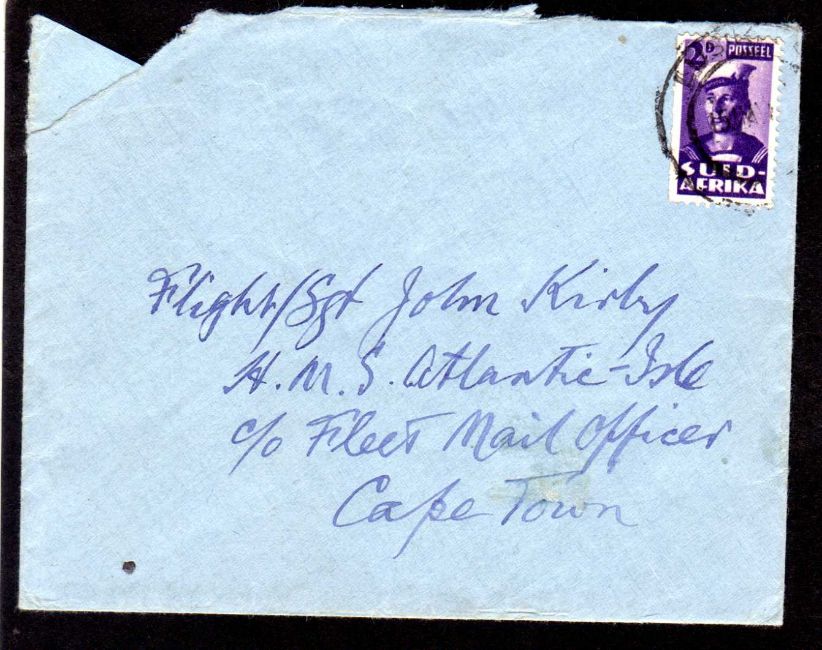 2D POSSEËL
SUID-
AFRIKA
Flight/Sgt John Kirby
H.M.S. Atlantic-Isle
c/o Fleet Mail Officer
Cape Town